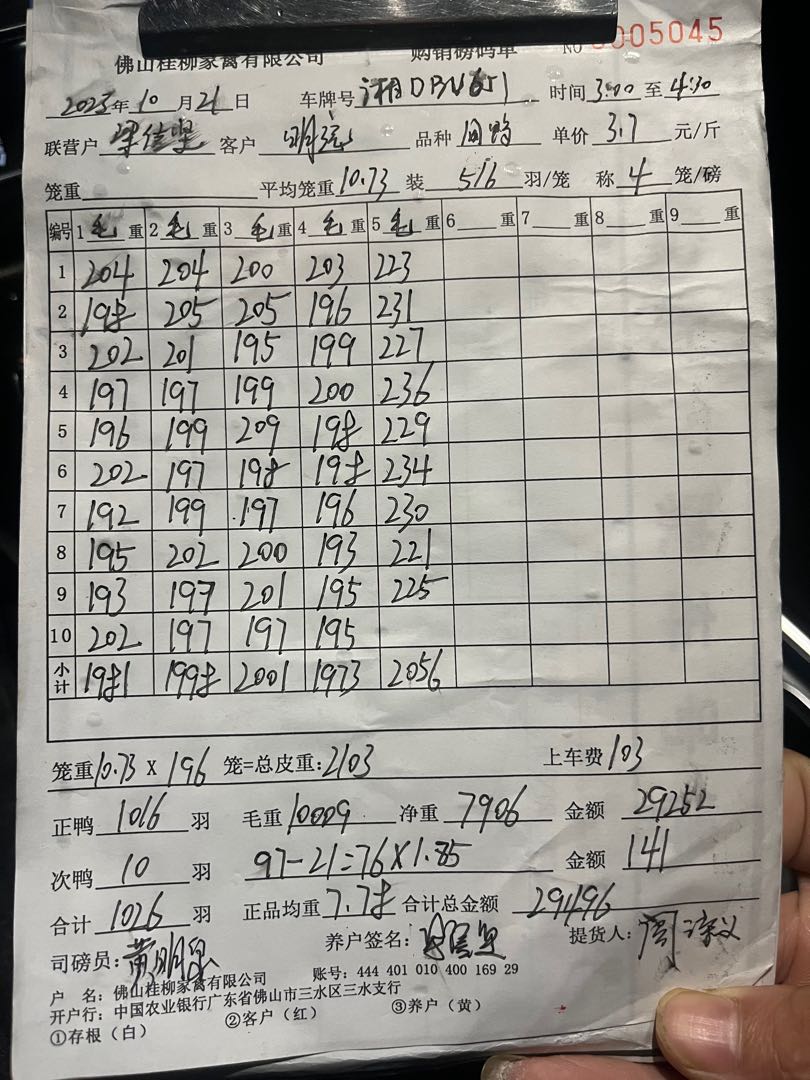 佛山桂柳家禽有限公司 购销磅码单 NO 0005045
2023年10月21日 车牌号 湘D 时间 3:00 至 4:30
联营户 客户 品种 单价 3.7 元/斤
笼重 平均笼重 10.73 装 5/6 羽/笼 称 4 笼/磅
编号 1 毛 重 2 毛 重 3 毛 重 4 毛 重 5 毛 重 6 重 7 重 8 重 9 重
1 204 204 200 203 223
2 198 205 205 196 231
3 202 201 195 199 227
4 197 197 199 200 236
5 196 199 209 198 229
6 202 197 198 198 234
7 192 199 197 196 230
8 195 202 200 193 221
9 193 197 201 195 225
10 202 197 197 195
小计 1981 1998 2001 1973 2056
笼重 10.73 X 196 笼=总皮重: 2103 上车费 103
正鸭 1016 羽 毛重 10009 净重 7906 金额 29252
次鸭 10 羽 97-21=76×1.85 金额 141
合计 1026 羽 正品均重 7.78 合计总金额 29496
司磅员: 黄明 养户签名: 提货人: 周
户 名: 佛山桂柳家禽有限公司 账号: 444 401 010 400 169 29
开户行: 中国农业银行广东省佛山市三水区三水支行
①存根(白) ②客户(红) ③养户(黄)